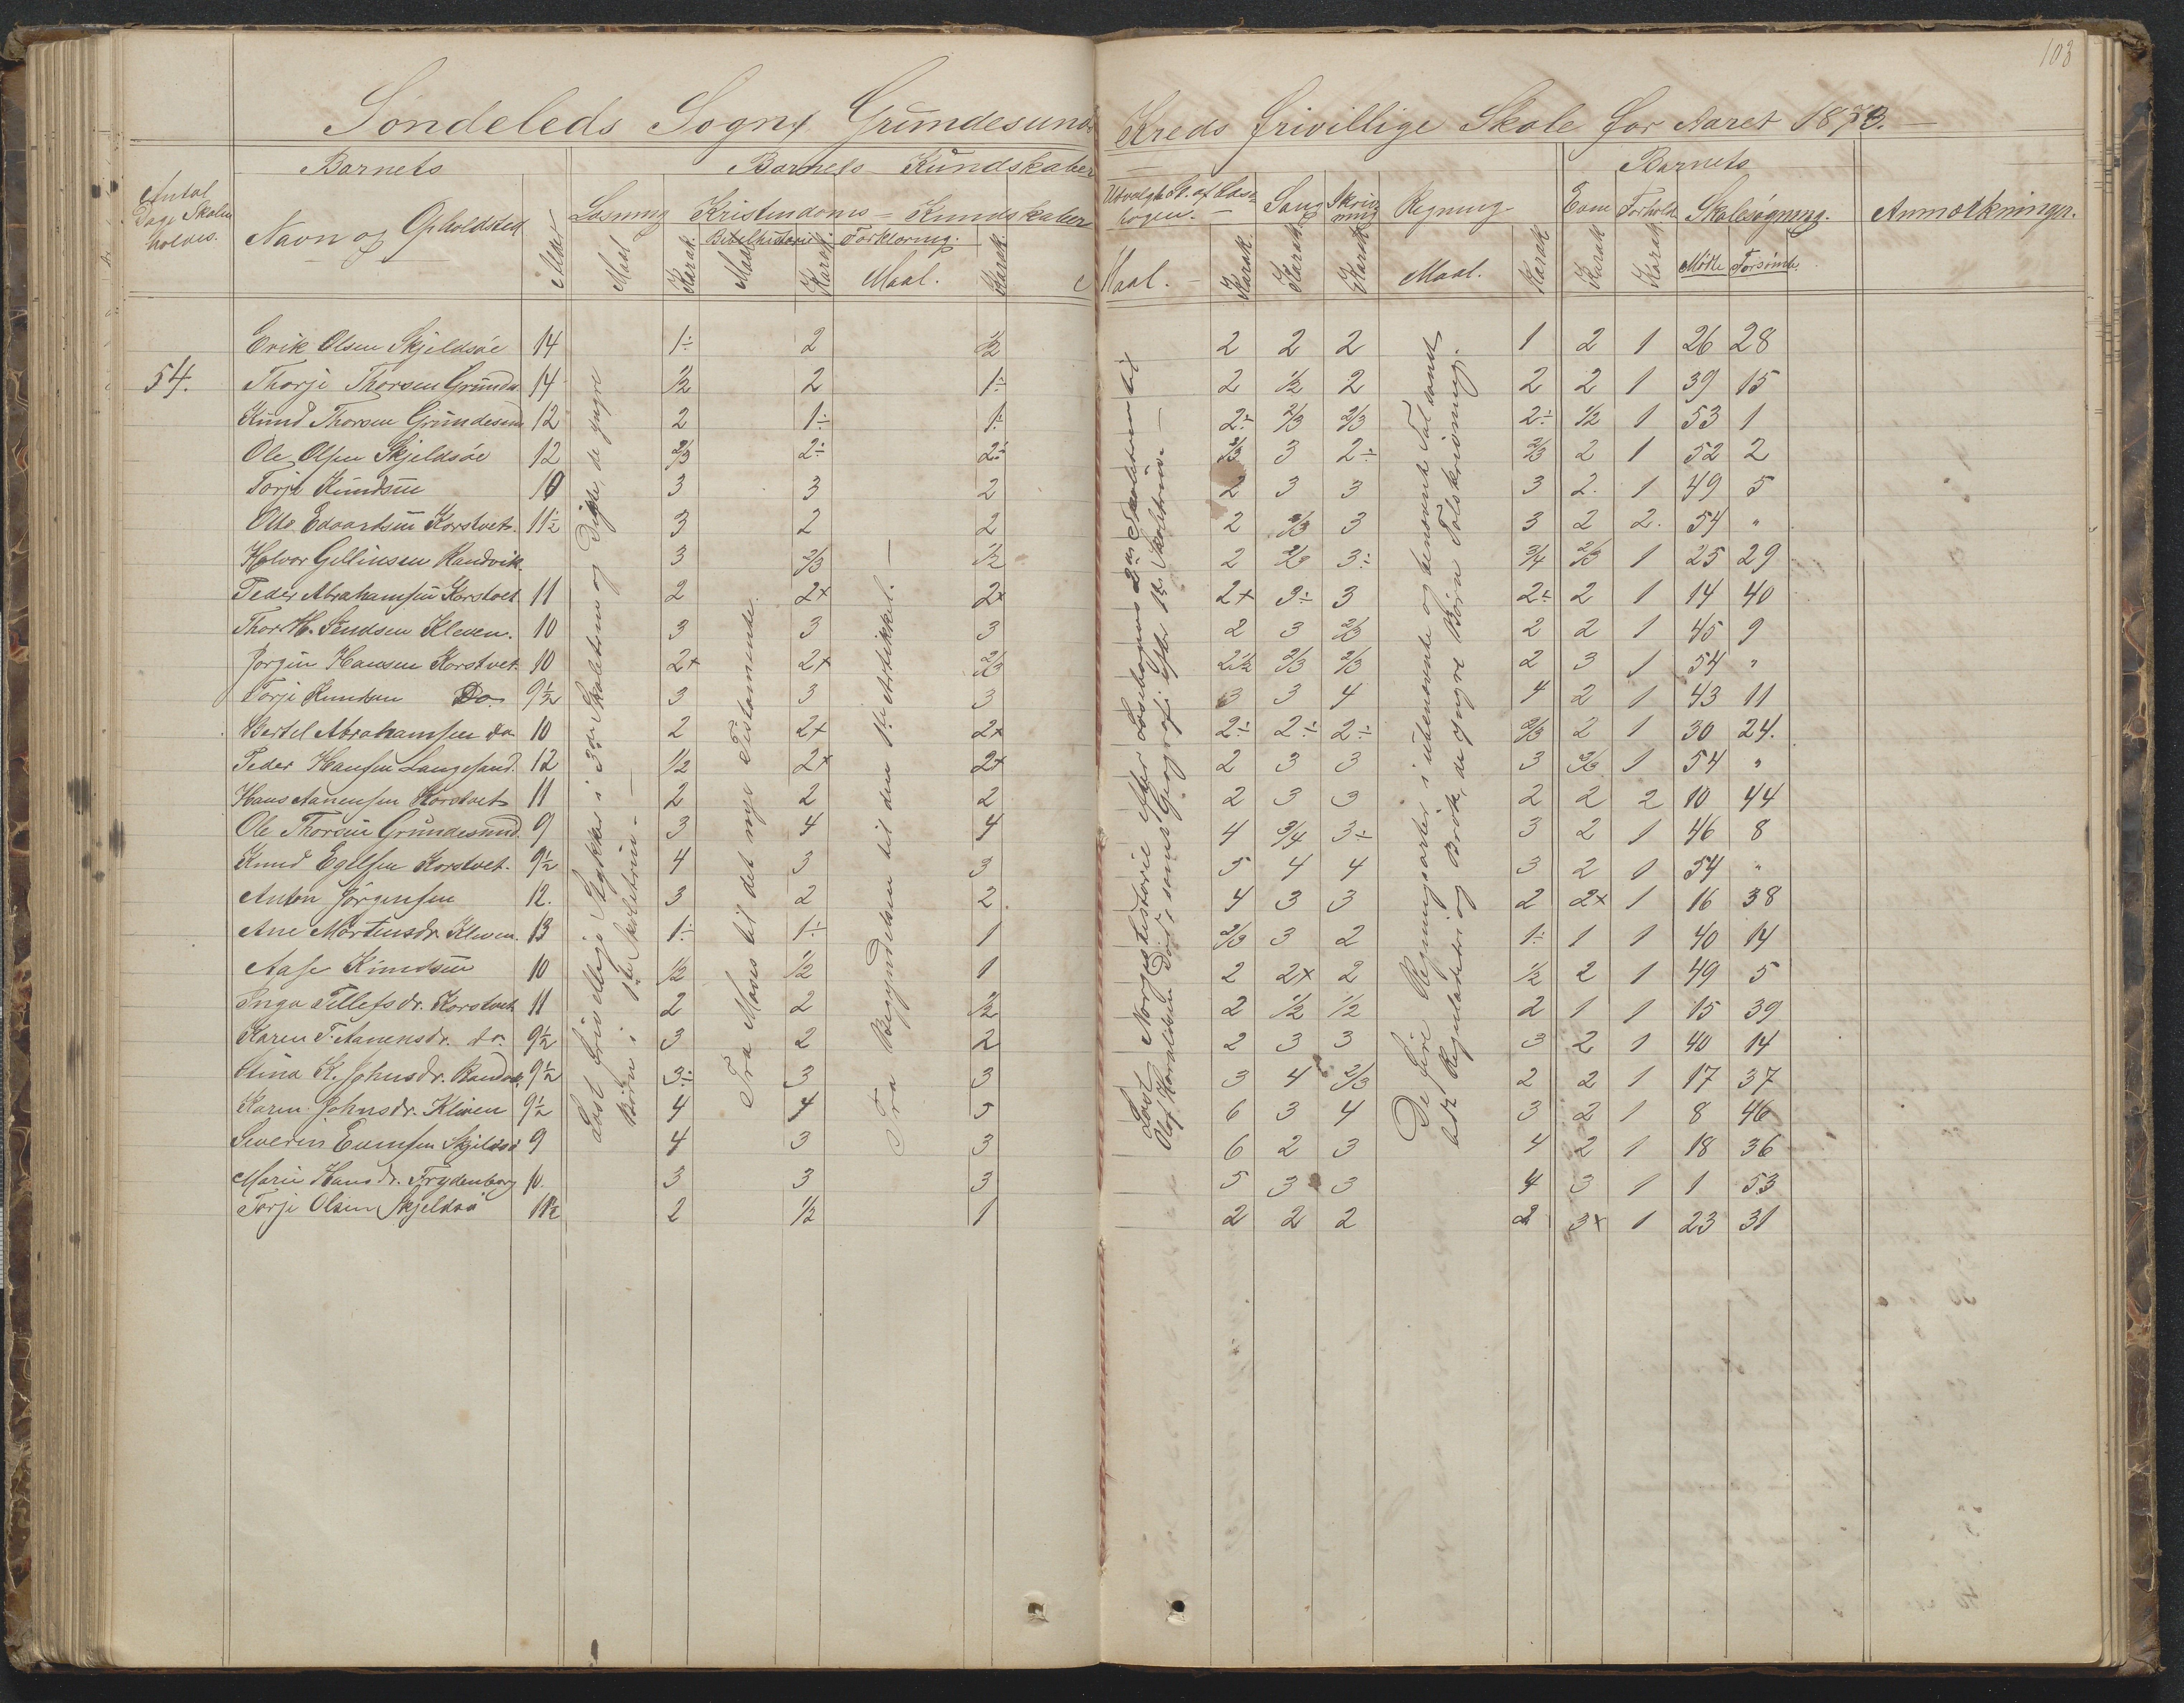 103
Söndeleds Sogns Grundesunds Kreds frivillige Skole for Aaret 1873.
Antal Dage Skolen holdes.
Barnets
Barnets Kundskaber
Barnets
Navn og Opholdsted
Alder
Læsning
Kristendoms-Kundskaber
Udvalgte St. af Læsebogen.
Sang
Skrivning
Regning
Evne
Forhold
Skolesøgning.
Anmærkninger.
Maal
Karak.
Bibelhistorie
Forklaring.
Maal
Karak.
Maal.
Karak.
Maal.
Karak.
Karak.
Karak.
Maal.
Karak.
Karak.
Karak.
Mødte
Forsømte.
Erik Olsen Skjeldsøe 14 1÷ 2 1/2 2 2 2 1 2 1 26 28
54. Thorje Thorsen Grundes 14 1/2 2 1÷ 2 1/2 2 2 2 1 39 15
Knud Thorsen Grundesund 12 2 1÷ 1÷ 2÷ 2/3 2/3 2÷ 1/2 1 53 1
Ole Olsen Skjeldsøe 12 2/3 2÷ 2÷ 2/3 3 2÷ 2/3 2 1 52 2
Torje Knudsen 10 3 3 2 2 3 3 3 2. 1 49 5
Otto Edvardsen Korstvet. 11½ 3 2 2 2 2/3 3 3 2 2. 54 "
Halvor Gellinsen Randvik. 3 2/3 1/2 2 2/3 3÷ 3/4 2/3 1 25 29
Peder Abrahamsen Korstvet 11 2 2+ 2+ 2+ 3÷ 3 2÷ 2 1 14 40
Thor H. Svudsen Kleven. 10 3 3 3 2 3 2/3 2 2 1 45 9
Jørgen Hansen Korstvet 10 2+ 2+ 2/3 2½ 2/3 2/3 2 3 1 54 "
Torje Knudsen Do. 9½ 3 3 3 3 3 4 4 2 1 43 11
Bertel Abrahamsen do 10 2 2+ 2+ 2÷ 2÷ 2÷ 2/3 2 1 30 24.
Peder Hansen Langesand. 12 1/2 2+ 2+ 2 3 3 3 2/3 1 54 "
Hans Aanensen Korstvet 11 2 2 2 2 3 3 2 2 2 10 44
Ole Thorsen Grundesund. 9 3 4 4 4 3/4 3÷ 3 2 1 46 8
Knud Egelsen Korstvet. 9½ 4 3 3 5 4 4 3 2 1 54 "
Anton Jörgensen 12. 3 2 2. 4 3 3 2 2+ 1 16 38
Ane Mortensdr. Kleven. 13 1÷ 1÷ 1 2/3 3 2 1÷ 1 1 40 14
Aase Knudsen 10 1/2 1/2 1 2 2+ 2 1/2 2 1 49 5
Inga Tellefsdr. Korstvet 11 2 2 1/2 2 1/2 1/2 2 1 1 15 39
Karen T. Aanensdr. do. 9½ 3 2 2 2 3 3 3 2 1 40 14
Stina K. Johnsdr. Randvik. 9½ 3÷ 3 3 3 4 2/3 2 2 1 17 37
Karen Johnsdr. Kleven 9½ 4 4 5 6 3 4 3 2 1 8 46
Severin Evensen Skjeldsö 9 4 3 3 6 2 3 4 2 1 18 36
Marie Hansdr. Frydenborg 10. 3 3 3 5 3 3 4 3 1 1 53
Torje Olsen Skjeldsö 11½ 2 1/2 1 2 2 2 2 3+ 1 23 31
Læst frivillige Stykker i 3die Skoletrin og Digte, de yngre
Børn i 1ste Skoletrin.
Fra Moses til det nye Testamente.
Fra Begyndelsen til den 1ste Artikkel.
Læst Norgeshistorie efter Læsebogens 2det Skoletrin til
Olaf Haraldsen Död, samt Geografi efter 1ste Skoletrin.
De fire Regningsarter i ubenævnte og benævnte Tal samt
lidt Reguladetri og Brök, de yngre Börn Talskrivning.